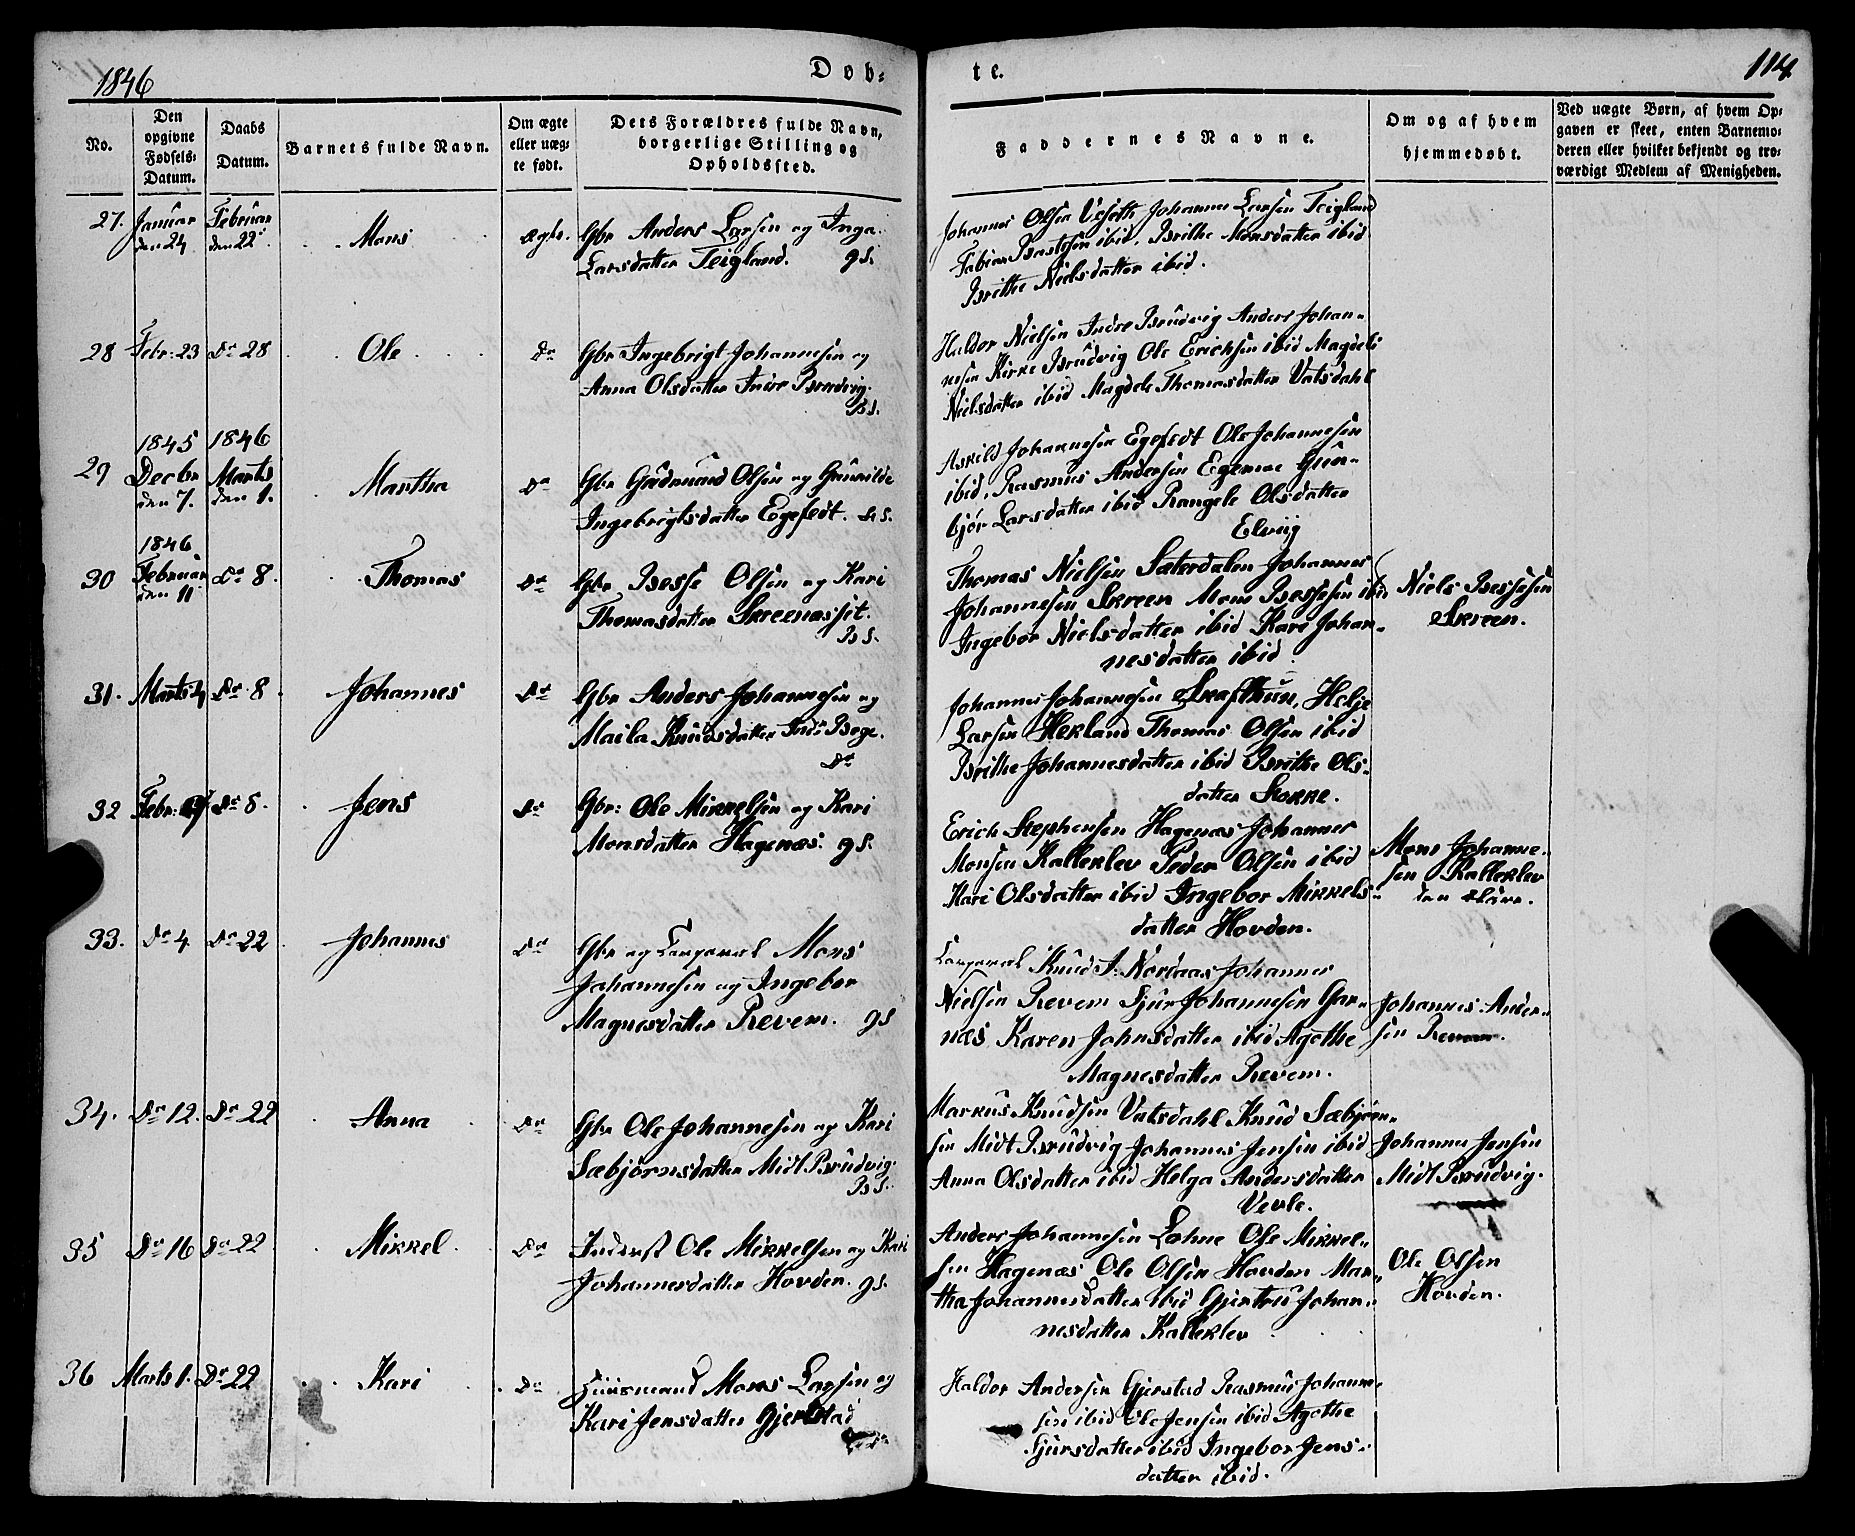 1846
Døb-
te.
114
No.
Den opgivne Fødsels-Datum.
Daabs Datum.
Barnets fulde Navn.
Om ægte eller uæg-te født.
Dets Forældres fulde Navn, borgerlige Stilling og Opholdssted.
Faddernes Navne.
Om og af hvem hjemmedøbt.
Ved uægte Børn, af hvem Op-gaven er skeet, enten Barnemo-deren eller hvilket bekjendt og tro-værdigt Medlem af Menigheden.
27. Januar den 24 Februar den 22 Mons ægte.
Gbr Anders Larsen og Inga
Larsdatter Teigland. gS.
Johannes Olsen Veseth Johannes Larsen Teigland
Fabian ibid, Brithe Monsdatter ibid
Brithe Nielsdatter ibid.
28 Febr: 23 Do 28 Ole Do
Gbr Ingebrigt Johannesen og
Anna Olsdatter Indre Brudvig.
BS.
Haldor Nielsen Indre Brudvig Anders Johan-
nesen Kirke Brudvig Ole Ericksen ibid Magdeli
Nielsdatter ibid Magdele Thomasdatter Vatsdahl
29 1845 Decbr den 7. 1846 Marts den 1. Martha Do
Gbr Gudmund Olsen og Gunnilde
Ingebrigtsdatter Egefedt. S.
Askild Johannesen Egefedt Ole Johannesen
ibid, Rasmus Andersen Egemoe Gun-
bjør Larsdatter ibid Rangele Olsdatter
Elviig
30 1846 Februar den 11 Do 8. Thomas Do
Gbr Besse Olsen og Kari
Thomasdatter Skreenæsset.
BS.
Thomas Nielsen Sæterdalen Johannes
Johannesen Skreen Mons Bessesen ibid
Ingebor Nielsdatter ibid Kari Johan-
nesdatter ibid
Niels Bessesen
Skreen.
31. Marts 4 Do 8 Johannes Do
Gbr Anders Johannesen og
Maila Knudsdatter Indre Boge.
Do
Johannes Johannesen Skafthun, Helje
Larsen Hekland Thomas Olsen ibid
Brithe Johannesdatter ibid Brithe Ols-
datter Skokke.
32 Febr: Do 8. Jens Do
Gbr: Ole Mikkelsen og Kari
Monsdatter Hagenæs. gS.
Erich Stephensen Hagenæs Johannes
Monsen Kalleklev Peder Olsen ibid
Kari Olsdatter ibid Ingebor Mikkels-
datter Hovden.
Mons Johanne-
sen Kalleklev
den
33. Do 4. Do 22 Johannes Do
Gbr og Corporal Mons
Johannesen og Ingebor
Magnesdatter Revem. gS
Corporal Knud J. Nordaas Johannes
Nielsen Revem Sjur Johannesen Gar-
næs Karen Johnsdatter ibid Agethe
Magnesdatter Revem.
Johannes Ander-
sen Revem.
34. Do 12. Do 22 Anna Do
Gbr Ole Johannesen og Kari
Sæbjørnsdatter Midt Brudvig.
BS.
Markus Knudsen Vatsdahl Knud Sæbjørn-
sen Midt Brudvig Johannes Jensen ibid
Anna Olsdatter ibid Helga Andersdatter
Vevle.
Johannes Jensen
Midt Brudvig.
35 Do 16 Do 22 Mikkel Do
Inderst Ole Mikkelsen og Kari
Johannesdatter Hovden. gS.
Anders Johannesen Lohne Ole Mikkel-
sen Hagenæs Ole Olsen Hovden Mar-
tha Johannesdatter ibid Gjertru Johan-
nesdatter Kalleklev
Ole Olsen
Hovden.
36 Marts 1. Do 22 Kari Do
Huusmand Mons Larsen og
Kari Jensdatter Gjerstad
Haldor Andersen Gjerstad Rasmus Johanne-
sen ibid Ole Jensen ibid Agethe
Sjursdatter ibid Ingebor Jens-
datter ibid.